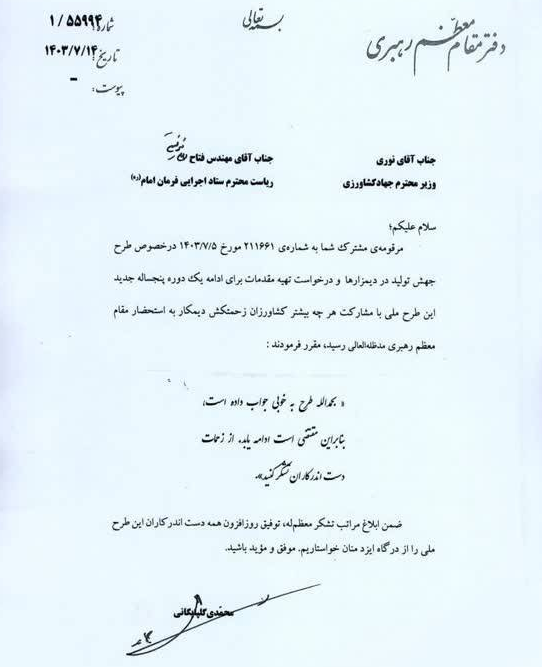 بسمه تعالی
دفتر مقام معظم رهبری
شماره: ۱/۵۵۹۹۴
تاریخ: ۱۴۰۳/۷/۱۴
پیوست: -
جناب آقای نوری
وزیر محترم جهادکشاورزی
جناب آقای مهندس فتاح
ریاست محترم ستاد اجرایی فرمان امام(ره)
سلام علیکم؛
مرقومه‌ی مشترک شما به شماره‌ی ۲۱۱۶۶۱ مورخ ۱۴۰۳/۷/۵ درخصوص طرح
جهش تولید در دیمزارها و درخواست تهیه مقدمات برای ادامه یک دوره پنجساله جدید
این طرح ملی با مشارکت هر چه بیشتر کشاورزان زحمتکش دیمکار به استحضار مقام
معظم رهبری مدظله‌العالی رسید، مقرر فرمودند:
« بحمدالله طرح به خوبی جواب داده است،
بنابراین مقتضی است ادامه یابد. از زحمات
دست اندرکاران تشکر کنید».
ضمن ابلاغ مراتب تشکر معظم‌له، توفیق روزافزون همه دست اندرکاران این طرح
ملی را از درگاه ایزد منان خواستاریم. موفق و مؤید باشید.
محمدی گلپایگانی